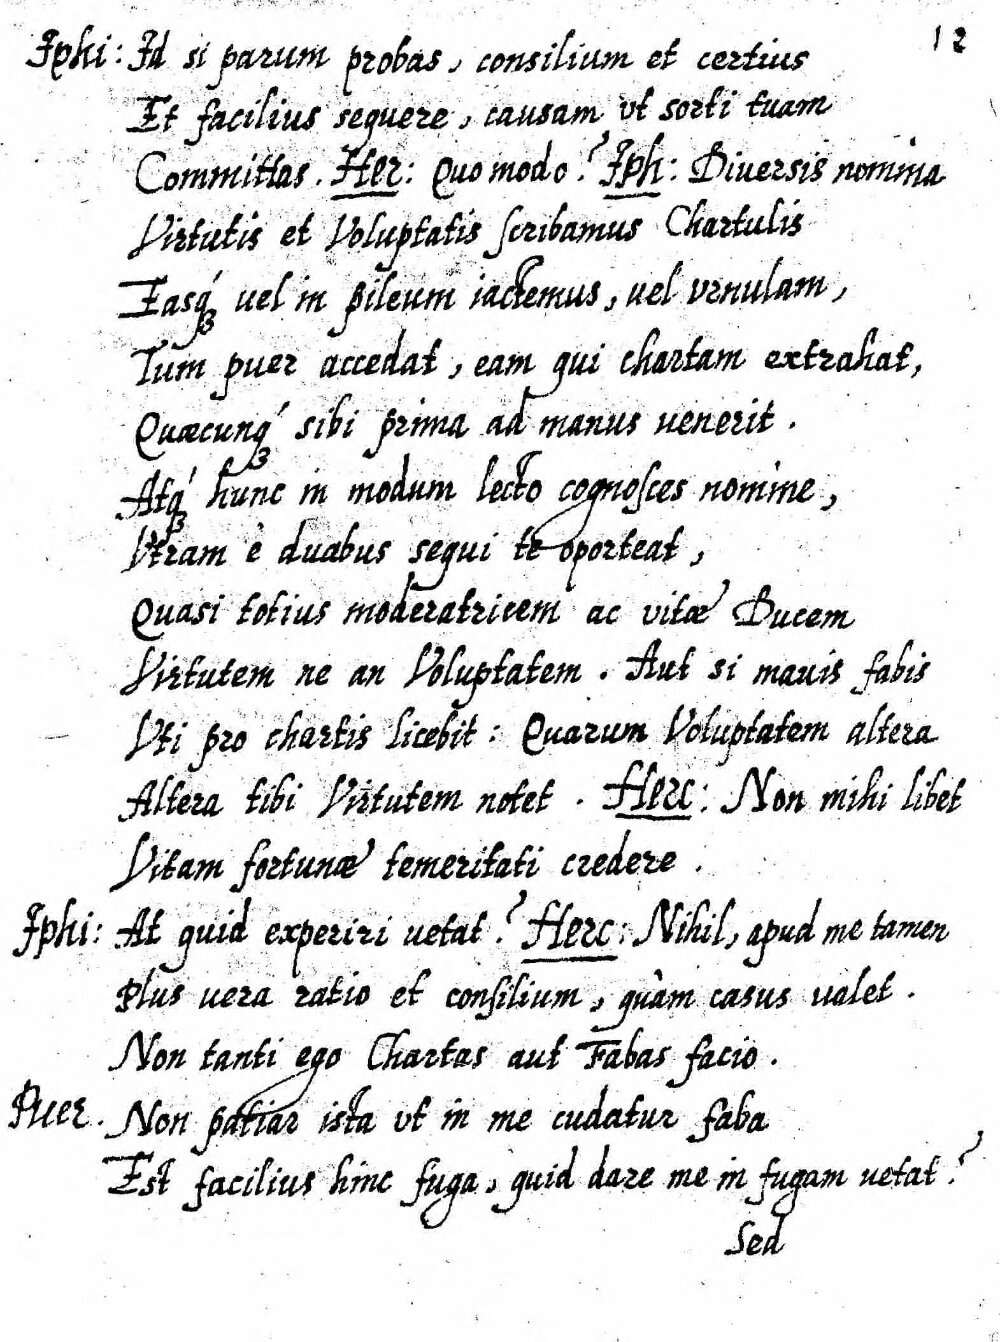 12
Iphi: Id si parum probas, consilium et certius
Et facilius sequere, causam vt sorti tuam
Committas. Her: Quo modo? Iph: Diuersis nomina
Virtutis et Voluptatis scribamus Chartulis
Easq́ꝫ uel in pileum iactemus, uel vrnulam,
Tum puer accedat, eam qui chartam extrahat,
Quæcunq́ꝫ sibi prima ad manus uenerit.
Atq́ꝫ hunc in modum lecto cognosces nomine,
Vtram è duabus sequi te oporteat,
Quasi totius moderatricem ac vitæ Ducem
Virtutem ne an Voluptatem. Aut si mauis fabis
Vti pro chartis licebit: Quarum Voluptatem altera
Altera tibi Virtutem notet. Herc: Non mihi libet
Vitam fortunæ temeritati credere.
Iphi: At quid experiri uetat? Herc: Nihil, apud me tamen
Plus uera ratio et consilium, quàm casus ualet.
Non tanti ego Chartas aut Fabas facio.
Puer. Non patiar ista vt in me cudatur faba
Est facilius hinc fuga, quid dare me in fugam uetat?
Sed